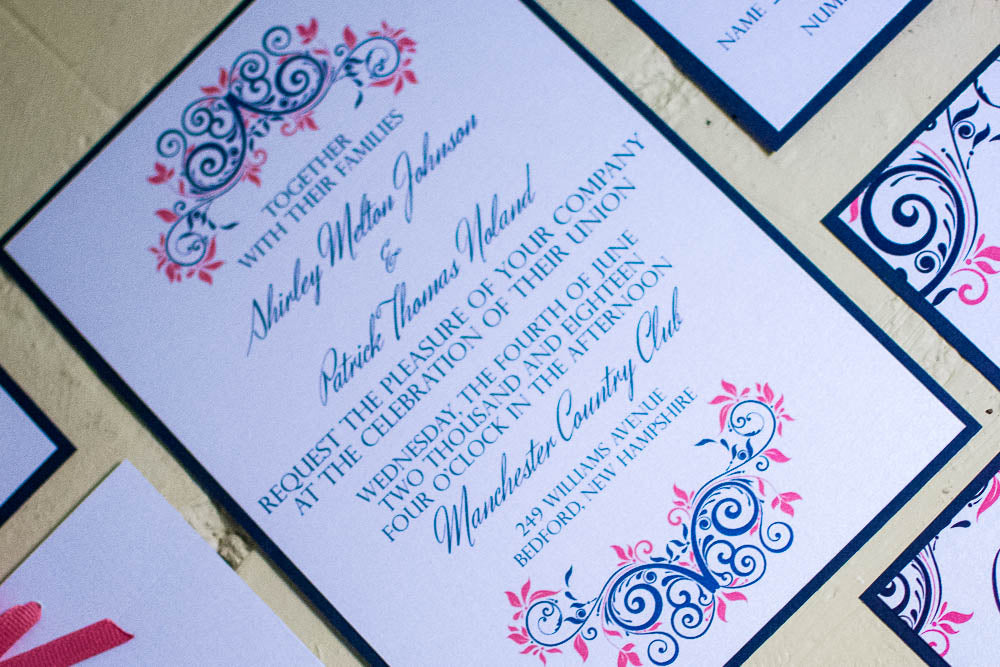 TOGETHER
WITH THEIR FAMILIES
Shirley Melton Johnson
&
Patrick Thomas Noland
REQUEST THE PLEASURE OF YOUR COMPANY
AT THE CELEBRATION OF THEIR UNION
WEDNESDAY, THE FOURTH OF JUNE
TWO THOUSAND AND EIGHTEEN
FOUR O'CLOCK IN THE AFTERNOON
Manchester Country Club
249 WILLIAMS AVENUE
BEDFORD, NEW HAMPSHIRE
NAME